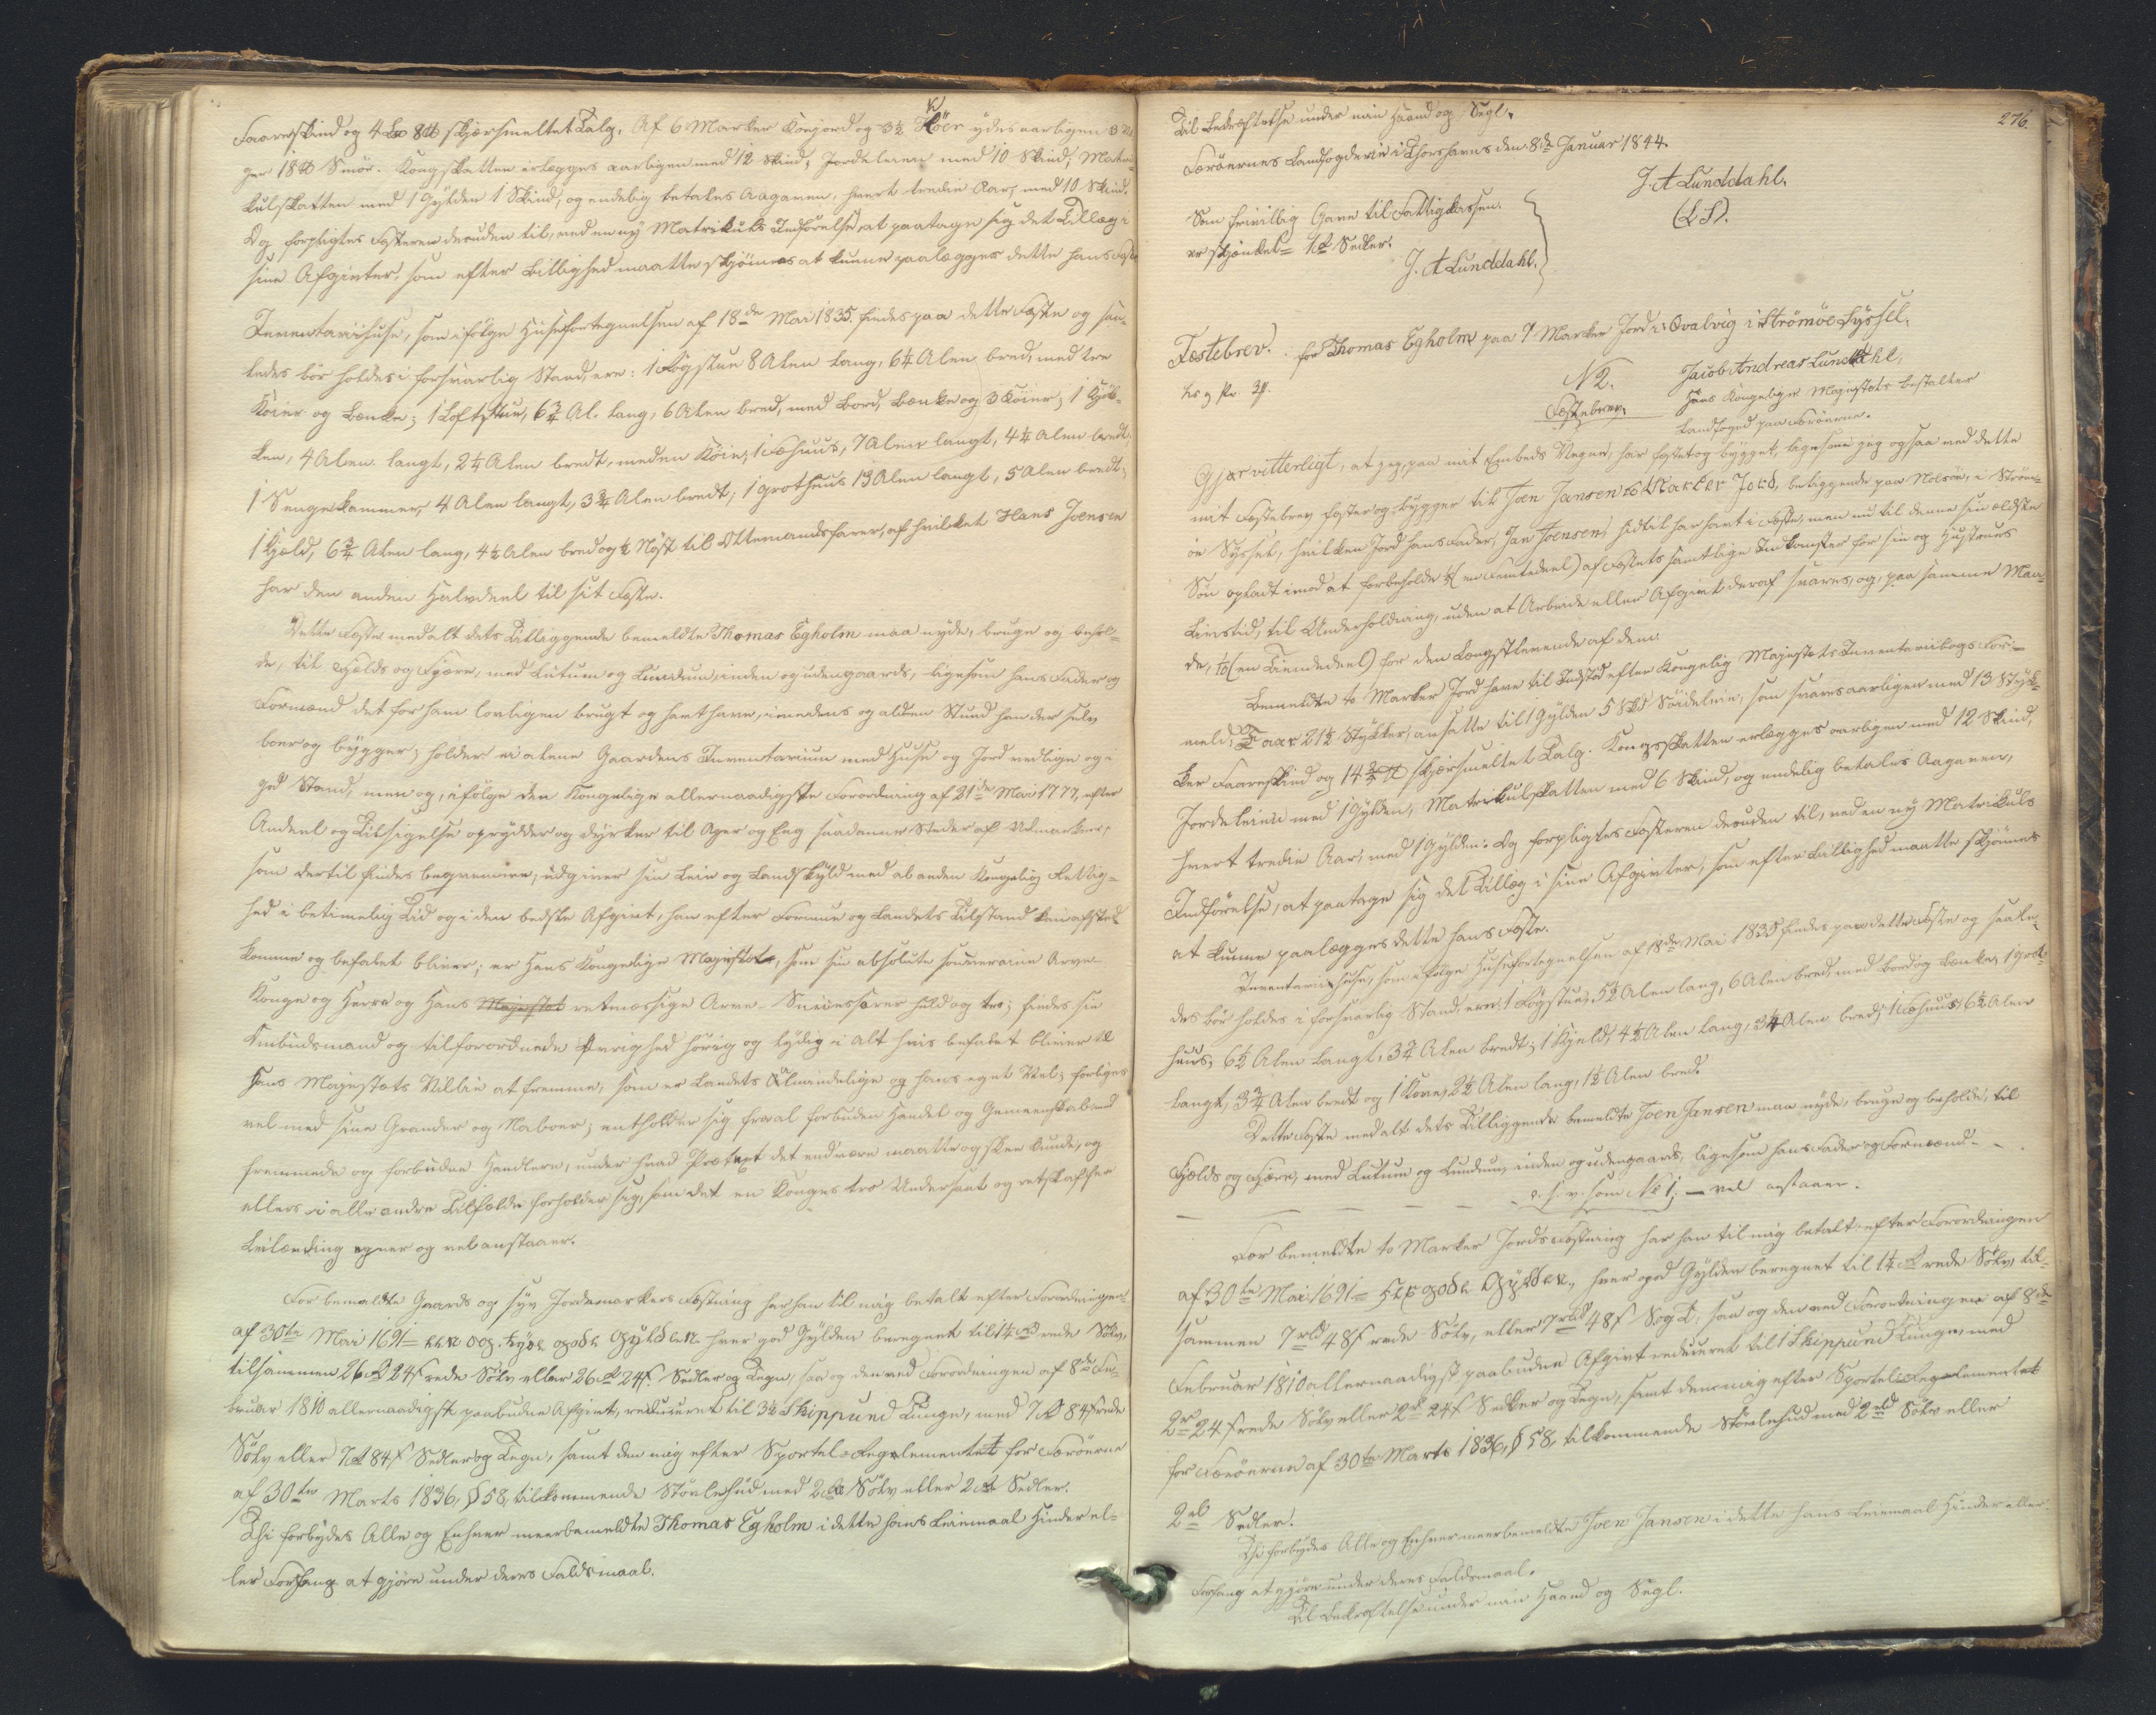 Faareskind og 4 L℔ 8 ℔ skjærsmeltet Talg. Af 6 Marker Konejord og 3½ Köer ydes aarligen 3 Vo-
ger 18 ℔ Smör. Kongskatten erlægges aarligen med 12 Skind, Jordeleien med 10 Skind, Matri-
kulskatten med 1 Gylden 1 Skind, og endelig betales Aagaven, hvert tredie Aar, med 10 Skind.
Og forpligtes Fæsteren desuden til, ved en ny Matrikuls Indförelse, at paatage sig det Tillæg i
sine Afgivter, som efter Billighed maatte skjönnes at kunne paalægges dette hans Fæste.
Inventariihuse, som ifölge Huusfortegnelsen af 18de Mai 1835 findes paa dette Fæste og saa-
ledes bör holdes i forsvarlig Stand, ere: 1 Rögstue 8 Alen lang, 6¼ Alen bred, med tre
Köier og Bænke; 1 Loftstue, 6¾ Al. lang, 6 Alen bred, med Bord, Bænke og 3 Köier; 1 Kjök-
ken, 4 Alen langt, 2¼ Alen bredt, med en Köie; 1 Fæhuus, 7 Alen langt, 4¼ Alen bredt;
1 Sengekammer, 4 Alen langt, 3¾ Alen bredt; 1 Grothuus 13 Alen langt, 5 Alen bredt;
1 Hjeld, 6¾ Alen lang, 4½ Alen bred og ½ Nöst til Ottemandsfarer, af hvilket Hans Joensen
har den anden Halvdeel til sit Fæste.
Dette Fæste med alt dets Tilliggende bemeldte Thomas Egholm maa nyde, bruge og behol-
de, til Fjelds og Fjære, med Lutum og Lundum, inden og udengaards, ligesom hans Fader og
Formænd det for ham lovligen brugt og havt have, imedens og al den Stund han der selv
boer og bygger; holder ei alene Gaardens Inventarium med Huse og Jord vedlige og i
god Stand, men og, ifölge den Kongelige allernaadigste Forordning af 21de Mai 1777, efter
Andeel og Tilsigelse oprydder og dyrker til Ager og Eng saadanne Steder af Udmarker,
som dertil findes beqvemme; udgiver sin Leie og Landskyld med al anden Kongelig Rettig-
hed i betimelig Tid og i den bedste Afgivt, han efter Formue og Landets Tilstand kan afsted
komme og befalet bliver; er Hans Kongelige Majestæt, som sin absolute souveraine Arve-
Konge og Herre og Hans Majestæt retmæssige Arve-Successorer huld og tro; findes sin
Embedsmand og tilforordnede Övrighed hörig og lydig i Alt hvis befalet bliver til
Hans Majestæts Villie at fremme, som er Landets Almindelige og hans eget Vel; forliges
vel med sine Grander og Naboer; entholder sig fra al forbuden Handel og Gemeenskab med
fremmede og forbudne Handlere, under hvad Prætext det end være maatte og skee kunde, og
ellers i alle andre Tilfælde forholder sig, som det en Konges tro Undersaat og retskaffen
Leilænding egner og vel anstaaer.
For bemeldte Gaards og syv Jordemarkers Fæstning har han til mig betalt efter Forordningen
af 30te Mai 1691 = een og tyve gode Gylden hver god Gylden beregnet til 1¼ rbd rede Sölv,
tilsammen 26 rbd 24 s rede Sölv eller 26 rbd 24 s. Sedler og Tegn, saa og den ved Forordningen af 8de Fe-
bruar 1810 allernaadigste paabudne Afgivt, reduceret til 3½ Skippund Tunge, med 7 rbd 84 s rede
Sölv eller 7 rbd 84 s Sedler og Tegn, samt den mig efter Sportel-Reglementet for Færöerne
af 30te Marts 1836, § 58, tilkommende Stövlehud med 2 rbd Sölv eller 2 rbd Sedler.
Thi forbydes Alle og Enhver meerbemeldte Thomas Egholm i dette hans Leiemaal Hinder el-
ler Forfang at gjöre under deres Faldsmaal.
276.
Til Bekræftelse under min Haand og Segl.
Færöernes Landfogderie i Thorshavn den 8de Januar 1844.
J. A Lunddahl.
(LS).
Som frivillig Gave til Fattigkassen
er skjænket = 1 rbd Sedler.
J. A Lunddahl.
Fæstebrev. for Thomas Egholm paa 7 Marker Jord i Qvalvig i Strömöe Syssel.
N 2. Jacob Andreas Lunddahl,
Fæstebrev Hans Kongelige Majestæts bestalter
Landfoged paa Færöerne.
Gjör vitterligt, at jeg, paa mit Embeds Vegne, har fæstet og bygget, ligesom jeg ogsaa med dette
mit Fæstebrev fæster og bygger til Joen Jansen to Marker Jord, beliggende paa Nolsöe, i Ström-
öe Syssel, hvilken Jord hans Fader, Jan Joensen, hidtil har havt i Fæste, men nu til denne sin ældste
Sön opladt imod at forbeholde ⅕ (en Femtedeel) af Fæstets samtlige Indkomster for sin og Hustrues
Livstid, til Underholdning, uden at Arbeide eller Afgivt deraf svares, og, paa samme Maa-
de, 1/10 (en Tiendedeel) for den Længstlevende af dem.
Bemeldte to Marker Jord have til Indstæd efter Kongelig Majestæts Inventariibogs For-
meld: Faar 21½ Stykker, ansatte til 1 Gylden 5 Skd Söideleie, som svares aarligen med 13 Styk-
ker Faareskind og 14⅔ ℔ skjærsmeltet Talg. Kongsskatten erlægges aarligen med 12 Skind,
Jordeleien med 1 Gylden, Matrikulskatten med 6 Skind, og endelig betales Aagaven,
hvert tredie Aar, med 1 Gylden. Og forpligtes Fæsteren desuden til, ved en ny Matrikuls
Indförelse, at paatage sig det Tillæg i sine Afgivter, som efter Billighed maatte skjönnes
at kunne paalægges dette hans Fæste.
Inventariihuse, som ifölge Huusfortegnelsen af 18de Mai 1835 findes paa dette Fæste og saale-
des bör holdes i forsvarlig Stand, ere: 1 Rögstue, 5½ Alen lang, 6 Alen bred, med Bord og Bænke; 1 Grot-
huus, 6½ Alen langt, 3¾ Alen bredt; 1 Hjeld, 4½ Alen lang, 3¼ Alen bred; 1 Fæhuus, 6½ Alen
langt, 3¾ Alen bredt og 1 Kove, 2½ Alen lang, 1½ Alen bred.
Dette Fæste med alt dets Tilliggende bemeldte Joen Jansen maa nyde, bruge og beholde, til
Fjelds og Fjære, med Lutum og Lundum, inden og udengaards, ligesom hans Fader og Formænd -
o. s. v. som No 1; — vel anstaaer.
For bemeldte to Marker Jords Fæstning har han til mig betalt efter Forordningen
af 30te Mai 1691 = sex gode Gylden, hver god Gylden beregnet til 1¼ rbd rede Sölv, til-
sammen 7 rbd 48 s rede Sölv, eller 7 rbd 48 s S og T, saa og den ved Forordningen af 8de
Februar 1810 allernaadigst paabudne Afgivt reduceret til 1 Skippund Tunge, med
2 rbd 24 s rede Sölv eller 2 rbd 24 s Sedler og Tegn, samt den mig efter Sportel-Reglementet
for Færöerne af 30te Marts 1836, § 58, tilkommende Stövlehud med 2 rbd Sölv eller
2 rbd Sedler.
Thi forbydes Alle og Enhver meerbemeldte Joen Jansen i dette hans Leiemaal Hinder eller
Forfang at gjöre under deres Faldsmaal.
Til Bekræftelse under min Haand og Segl.